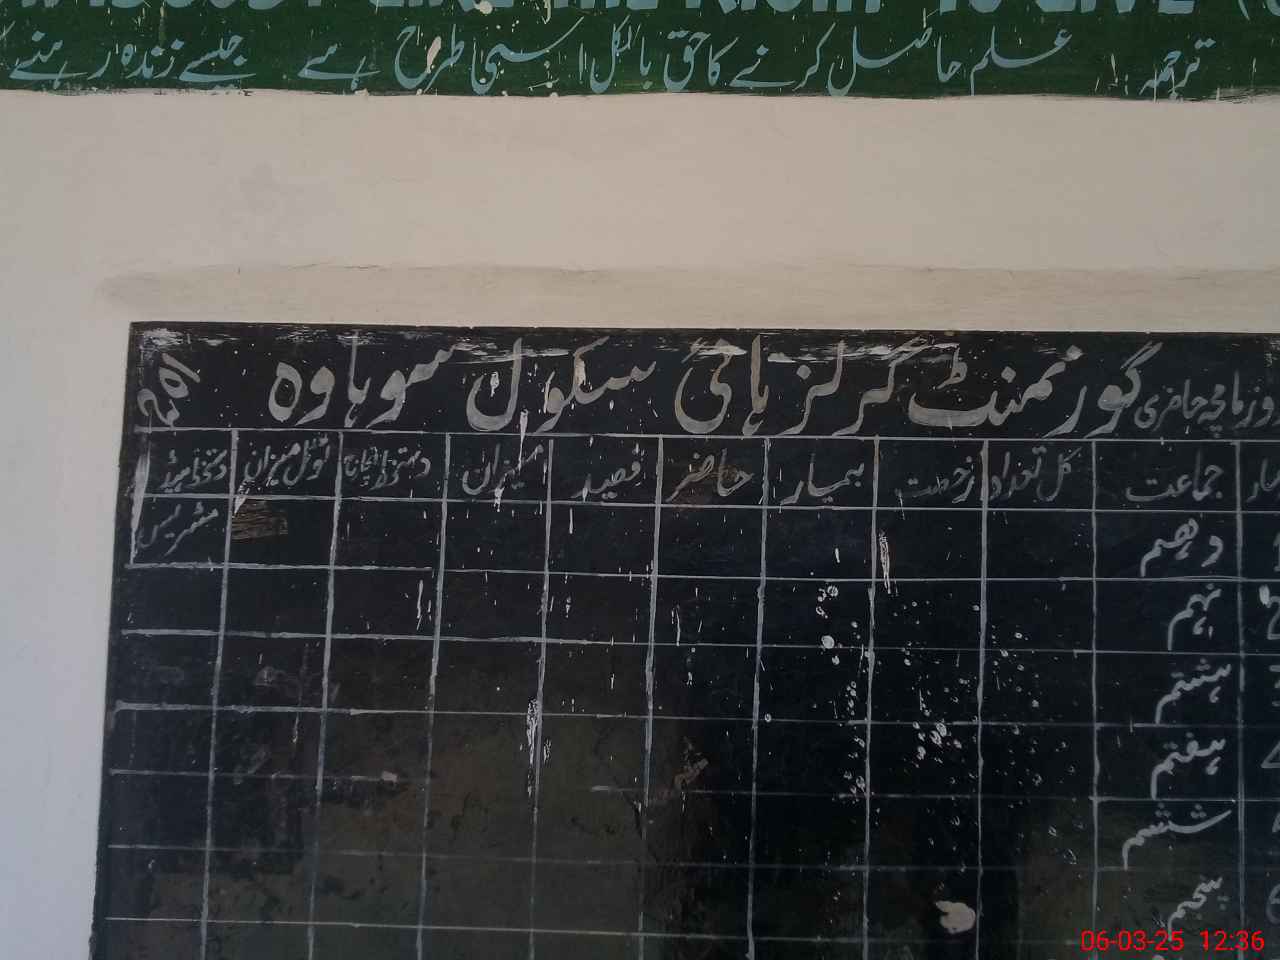 ترجمہ: علم حاصل کرنے کا حق بالکل اسی طرح ہے جیسے زندہ رہنے
روزنامچہ حاضری گورنمنٹ گرلز ہائی سکول سوہاوہ
جماعت کل تعداد رخصت بیمار حاضر فیصد میزان دستخط انچارج ٹوٹل میزان دستخط ہیڈ مسٹریس
دہم
نہم
ہشتم
ہفتم
ششم
پنجم
06-03-25 12:36